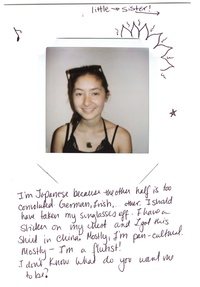 little → sister!
I'm Japanese because the other half is too
convoluted German, Irish, other. I should
have taken my sunglasses off. I have a
sticker on my chest and I got this
shirt in China. Mostly, I'm pan-cultural.
Mostly - I'm a flutist!
I dont know what do you want me
to be?